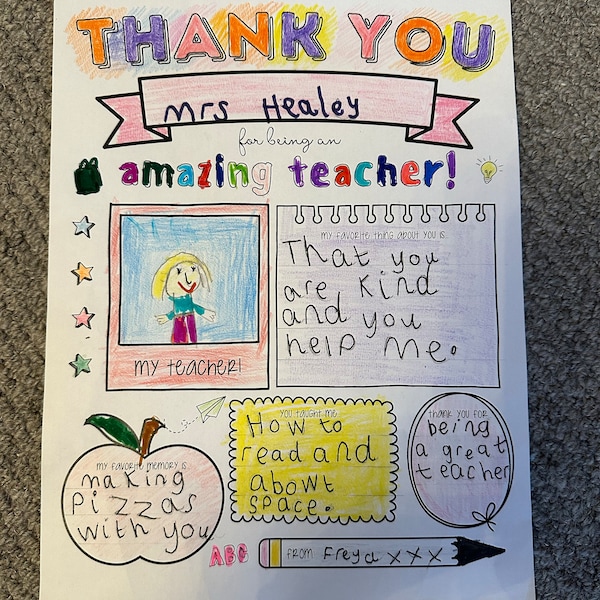 THANK YOU
Mrs Healey
for being an
amazing teacher!
MY FAVORITE THING ABOUT YOU IS
That you
are kind
and you
help me.
MY TEACHER!
MY FAVORITE MEMORY IS
making
Pizzas
with you
YOU TAUGHT ME
How to
read and
abowt
space.
THANK YOU FOR
being
a great
teacher
ABC
FROM Freya xxx